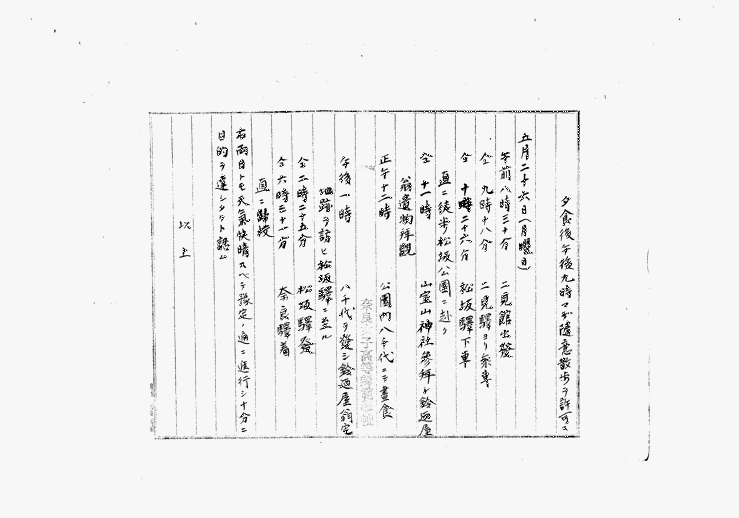 夕食後午後九時マデ隨意散歩ヲ許可ス
五月二十六日(月曜日)
午前八時三十分 二見館出發
仝 九時十八分 二見驛ヨリ乘車
仝 十時二十六分 松坂驛下車
直ニ徒歩松坂公園ニ赴ク
仝 十一時 山室山神社參拜 鈴廼屋
翁遺物拜觀
正午十二時 公園内八千代ニテ晝食
午後一時 八千代ヲ發シ鈴廼屋翁宅
地跡ヲ訪ヒ松坂驛ニ至ル
仝 二時二十五分 松坂驛發
仝 六時三十一分 奈良驛着
直ニ歸校
右兩日トモ天氣快晴スベテ豫定ノ通ニ進行シ十分ニ
目的ヲ達シタリト認ム
以上